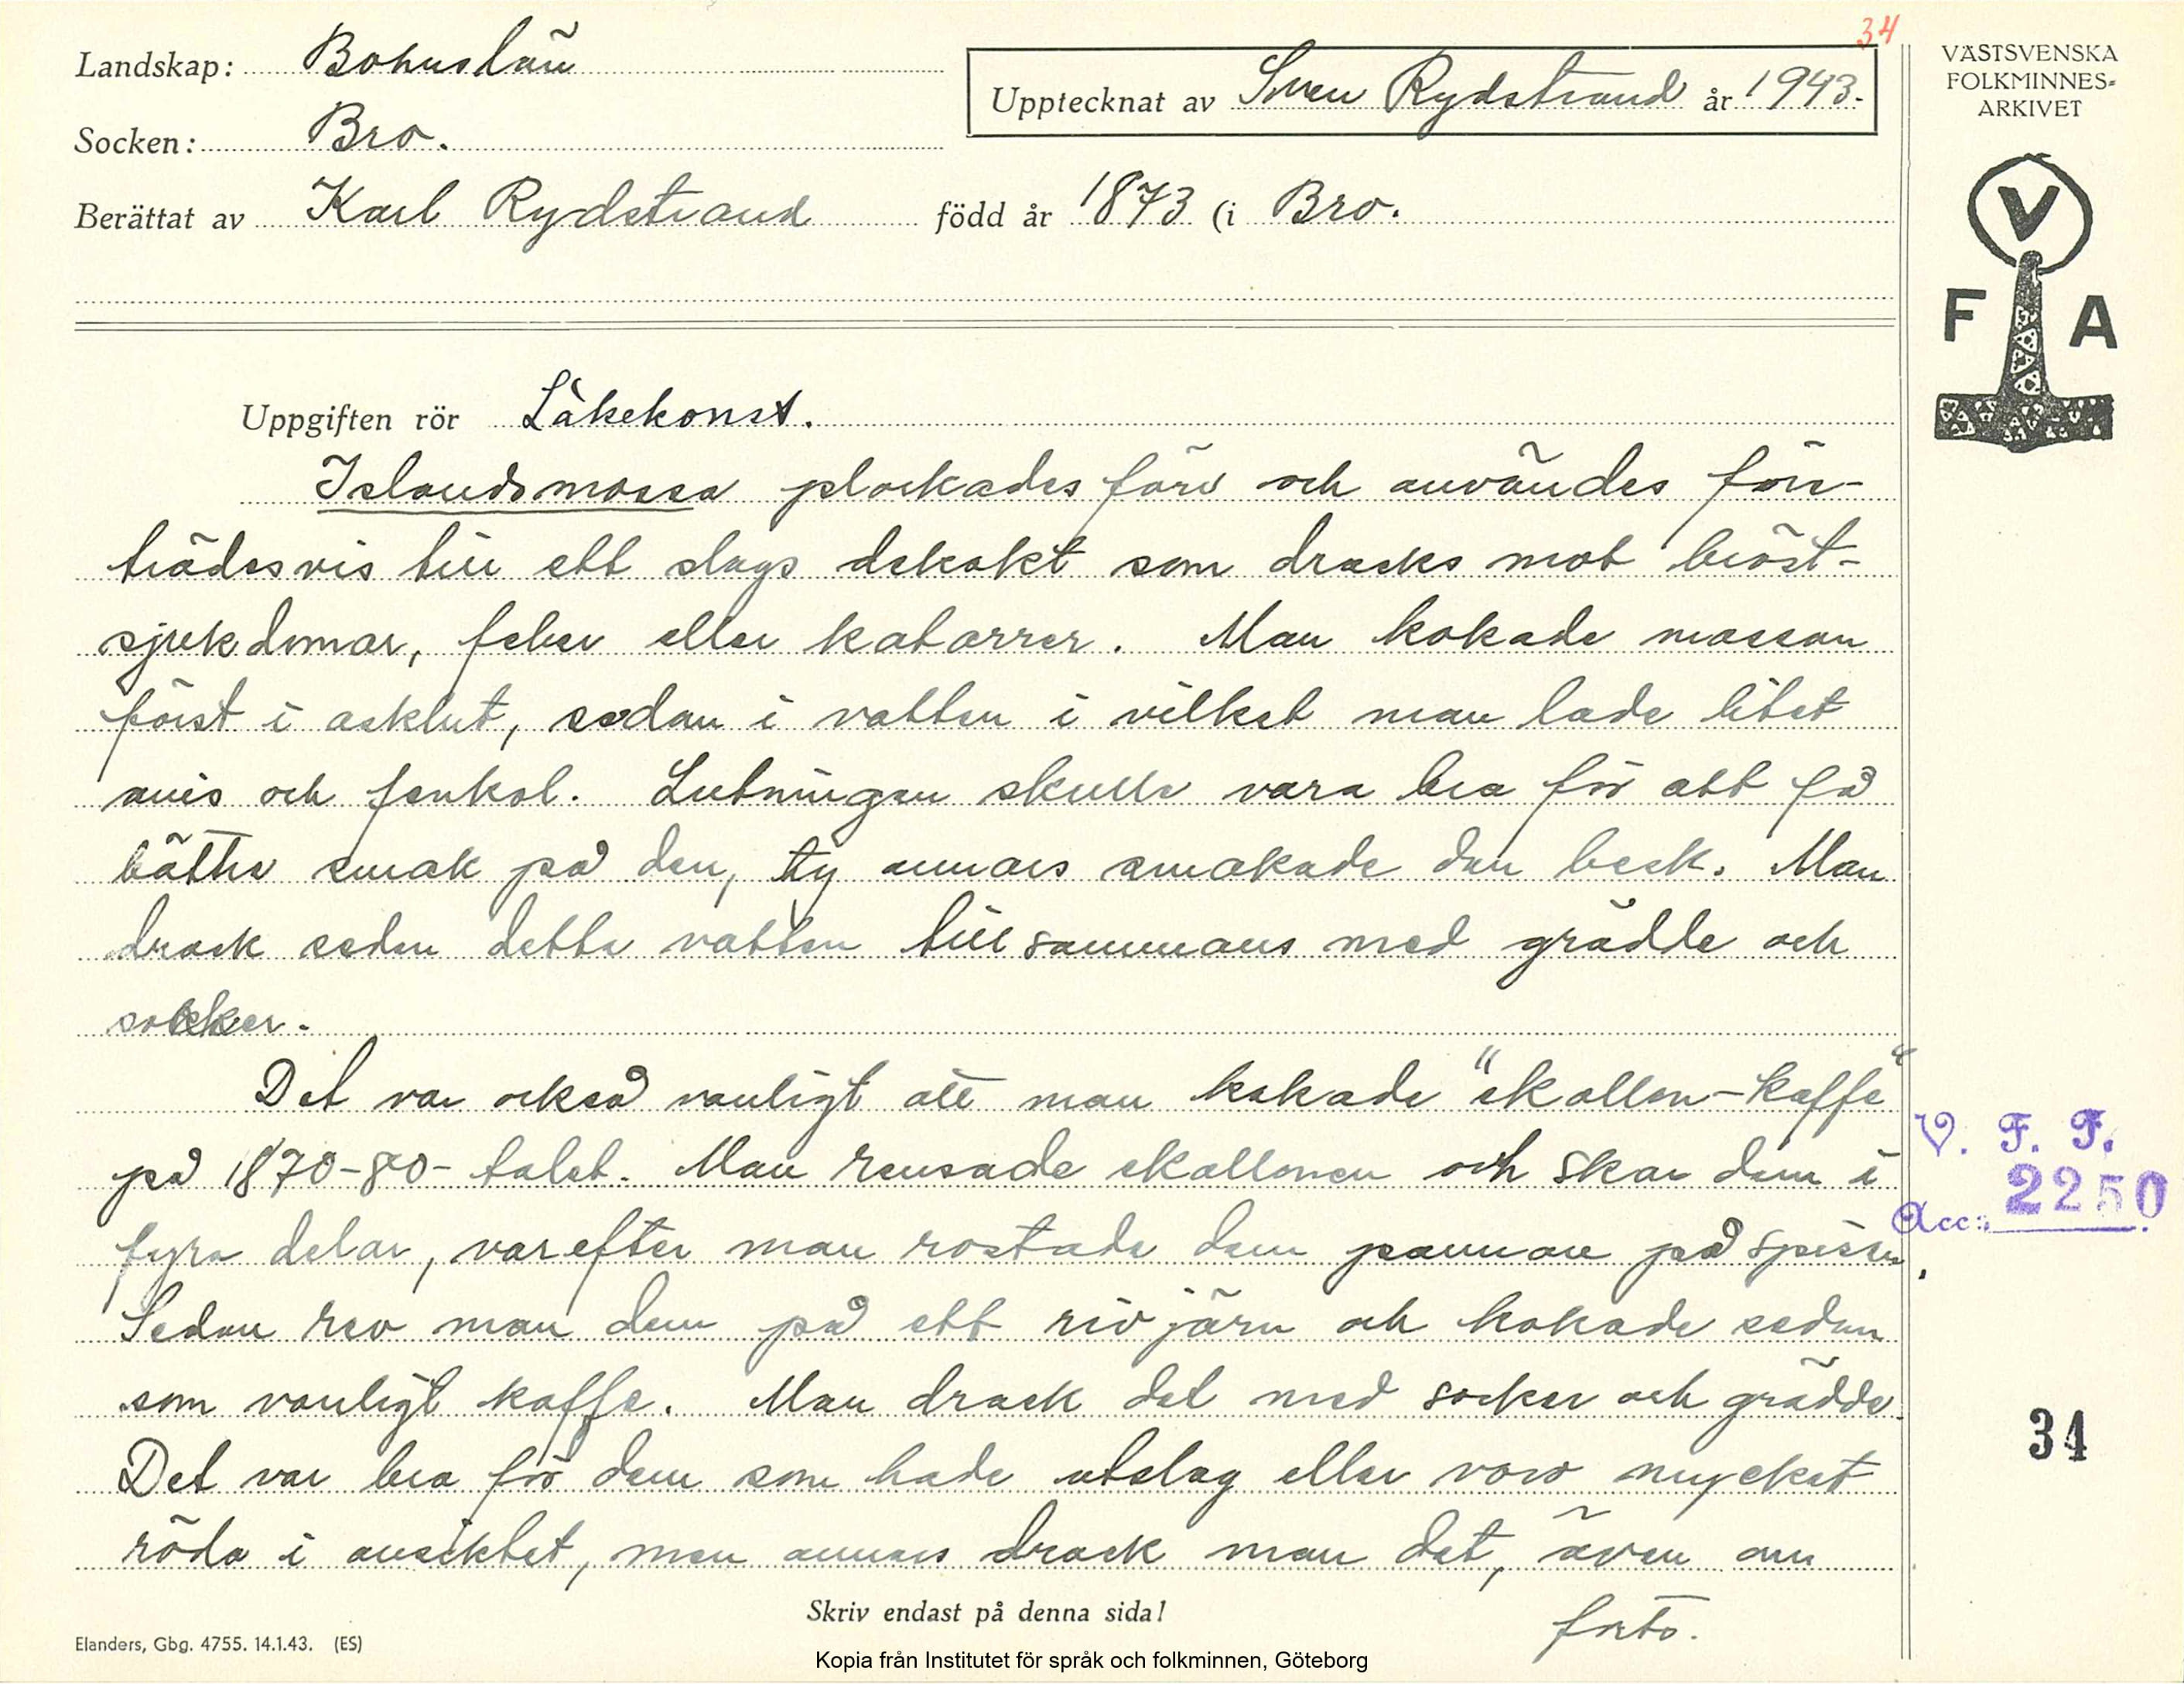 34
Landskap: Bohuslän
Upptecknat av Sven Rydstrand år 1943.
Socken: Bro.
Berättat av Karl Rydstrand född år 1873 (i Bro.
VÄSTSVENSKA
FOLKMINNES-
ARKIVET
V
F A
Uppgiften rör Läkekonst.
Islandsmossa plockades förr och användes före-
trädesvis till ett slags dekokt som dracks mot bröst-
sjukdomar, feber eller katarrer. Man kokade mossan
först i asklut, sedan i vatten i vilket man lade litet
anis och fenkol. Lutningen skulle vara bra för att få
bättre smak på den, ty annars smakade den besk. Man
drack sedan detta vatten tillsammans med grädde och
socker.
Det var också vanligt att man kokade "ekollon-kaffe"
på 1870-80-talet. Man rensade ekollonen och skar dem i
fyra delar, varefter man rostade dem pannan på spisen.
Sedan rev man dem på ett rivjärn och kokade sedan
som vanligt kaffe. Man drack det med socker och grädde.
Det var bra för dem som hade utslag eller voro mycket
röda i ansiktet, men annars drack man det, även om
forts.
V. F. F.
Acc: 2250
34
Skriv endast på denna sida!
Elanders, Gbg. 4755. 14.1.43. (ES)
Kopia från Institutet för språk och folkminnen, Göteborg